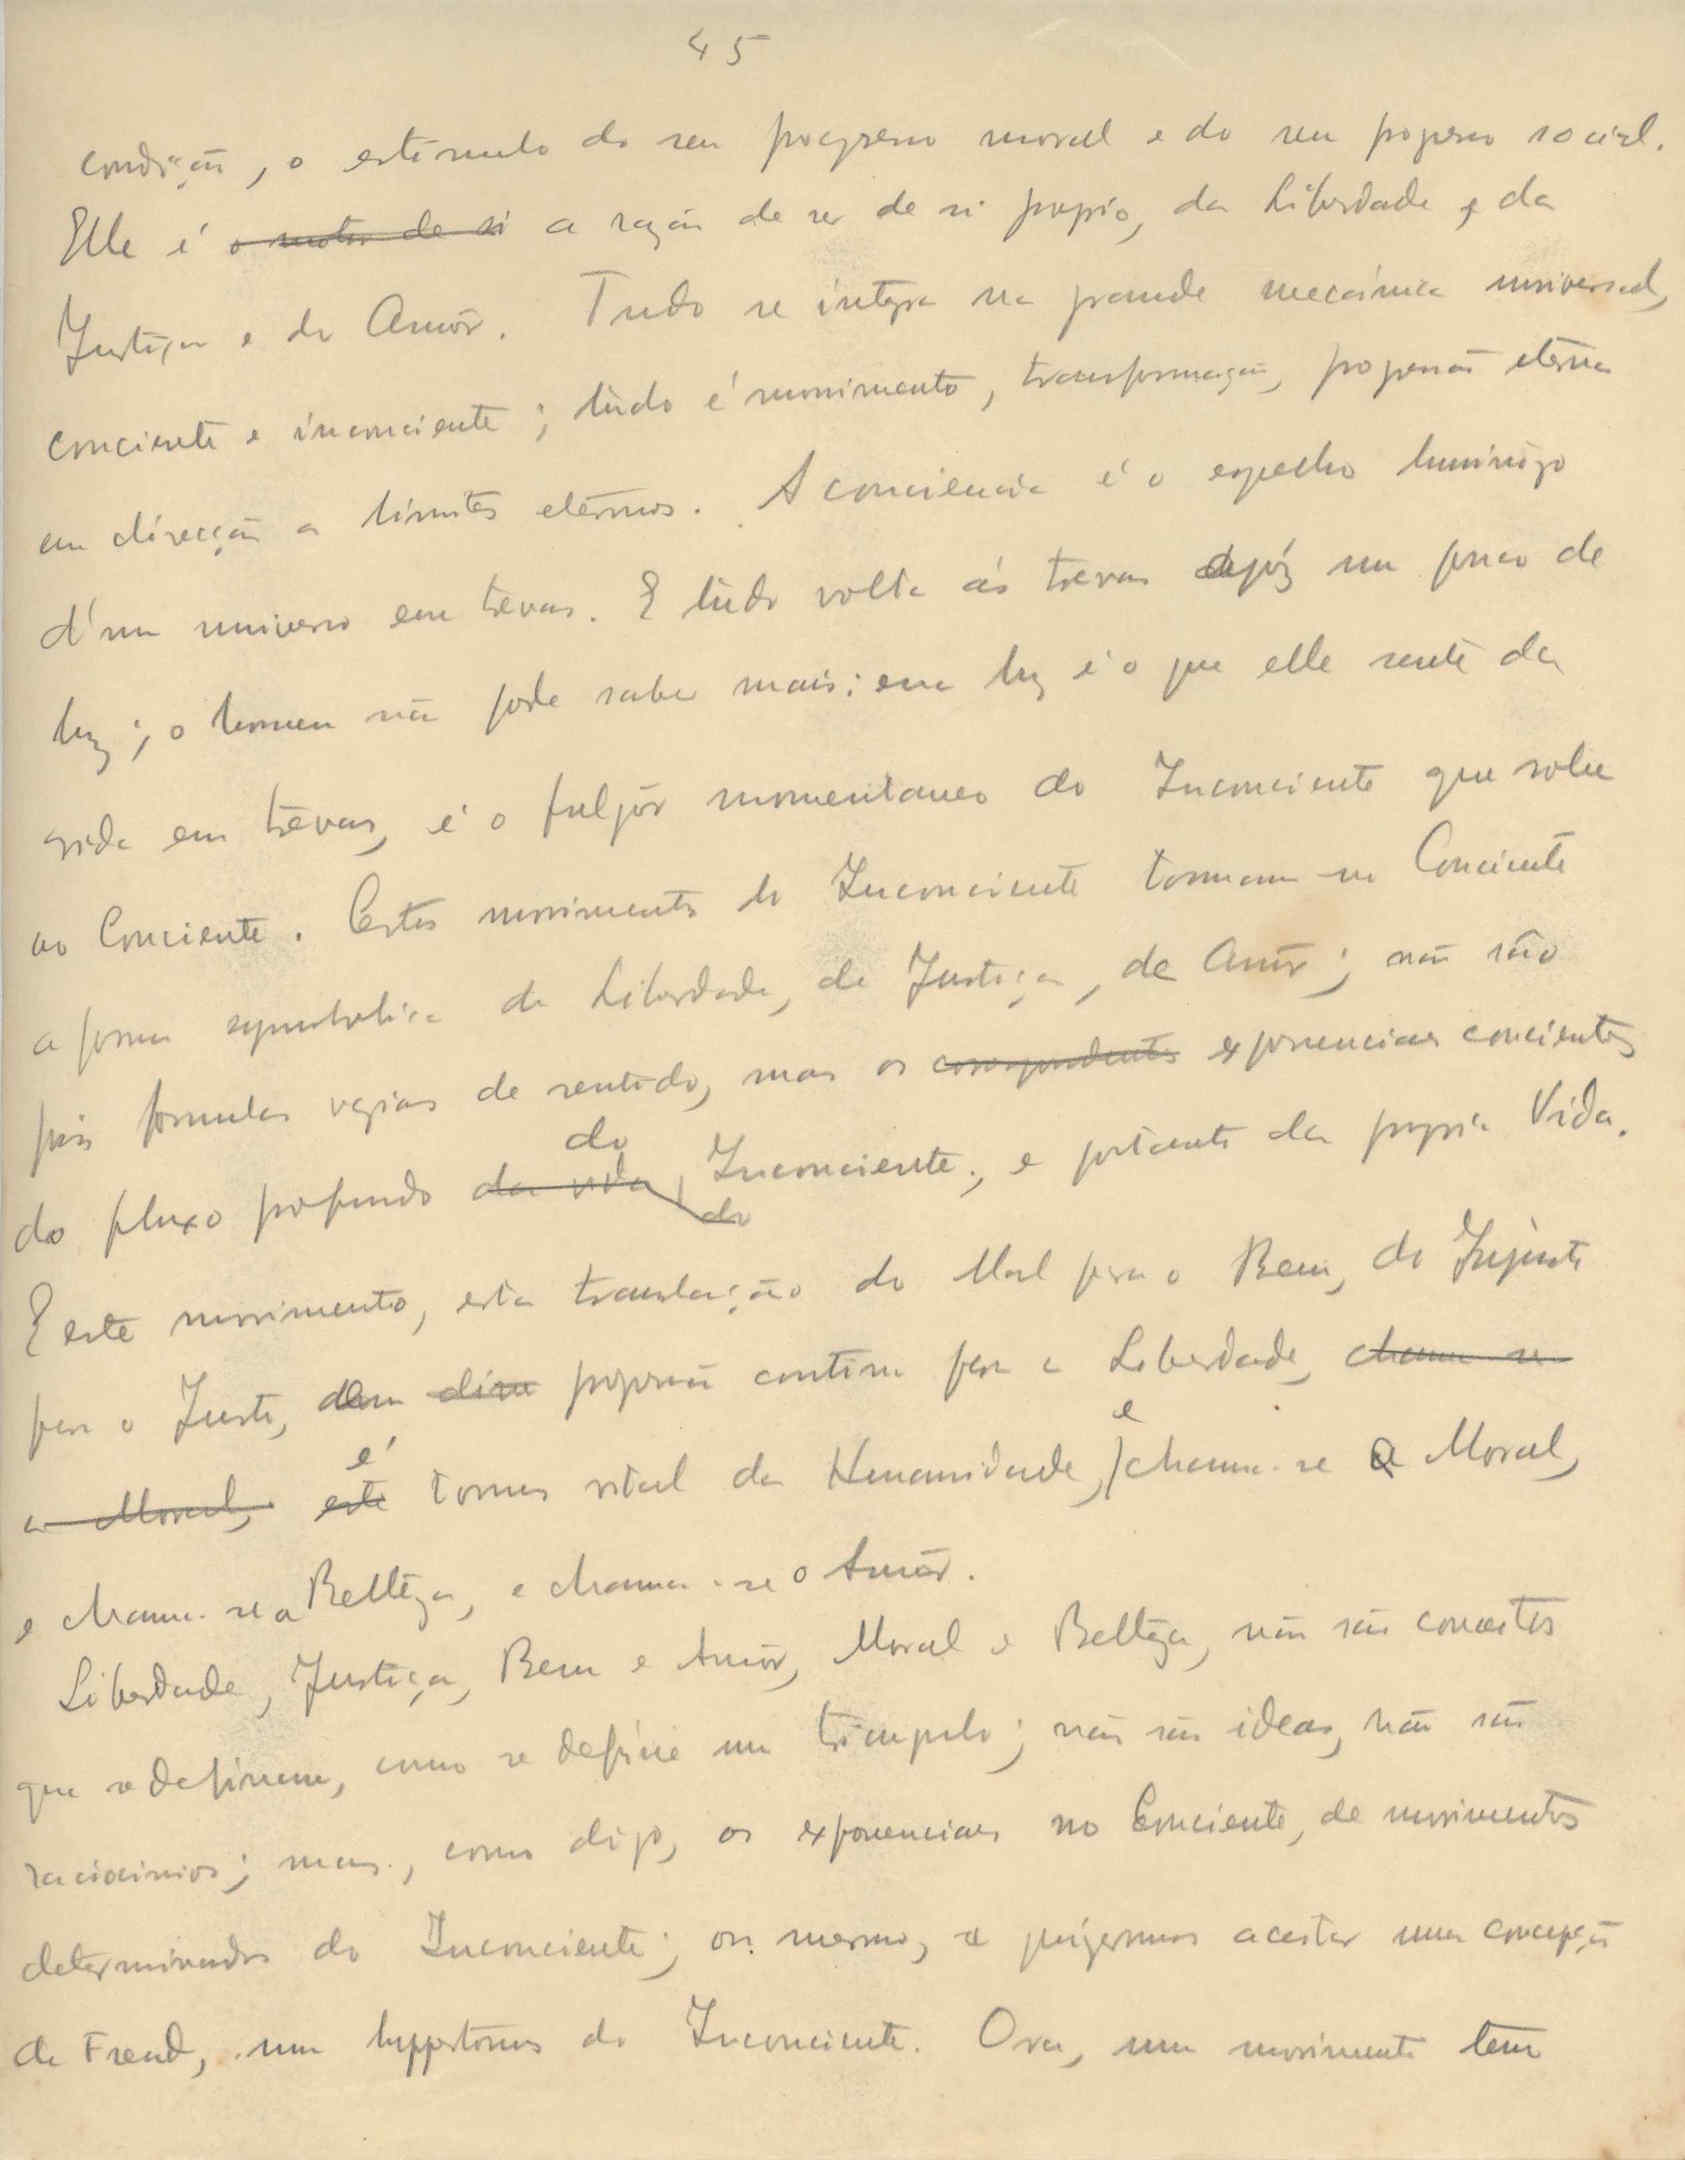 45
condição, o estimulo do seu progresso moral e do seu progresso social.
Elle é o motor de si a razão de ser de si proprio, da Liberdade e da
Justiça e do Amôr. Tudo se integra na grande mecánica universal,
conciente e inconciente; tudo é movimento, transformação, progressão eterna
em direcção a limites eternos. A conciencia é o espelho luminoso
d'um universo em trevas. E tudo volta ás trevas após um pouco de
luz; o homem não pode saber mais; essa luz é o que elle sente da
vida em trevas, é o fulgôr momentaneo do Inconciente que sobe
ao Conciente. Certos movimentos do Inconciente tomam no Conciente
a forma symbolica de Liberdade, de Justiça, de Amôr; não são
pois formulas vazias de sentido, mas os correspondentes exponenciaes concientes
do
do fluxo profundo da vida do Inconciente, e portanto da propria Vida.
E este movimento, esta translação do Mal para o Bem, do Injusto
para o Justo, progressão contínua para a Liberdade, chama-se
e
é
a Moral, este tonus vital da Humanidade, chama-se a Moral,
e chama-se a Bellêza, e chama-se o Amôr.
Liberdade, Justiça, Bem e Amôr, Moral e Bellêza, não são conceitos
que se definem, como se define um triangulo; não são ideas, não são
raciocinios; mas, como digo, os exponenciaes no Conciente, de movimentos
determinados do Inconciente; ou mesmo, se quizermos aceitar uma concepção
de Freud, um hypertonus do Inconciente. Ora, um movimento tem